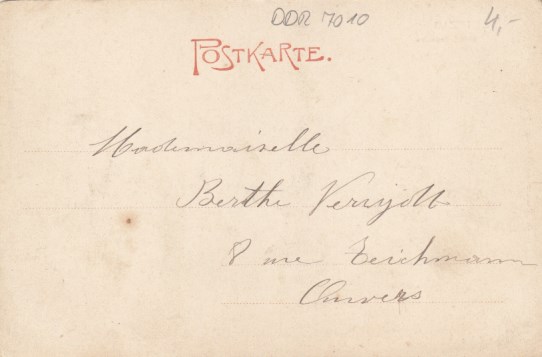 DDR 7010
4,-
POSTKARTE.
Mademoiselle
Berthe Verrydt
8 rue Teichmann
Anvers